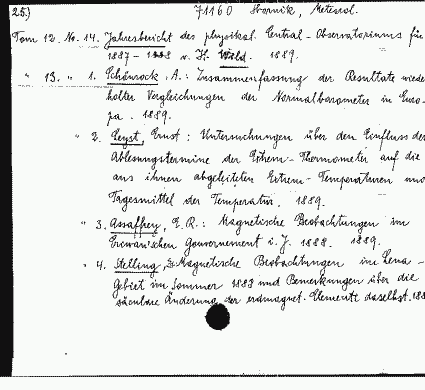 25.) 71160 Sbornik, Meteorol.
Tom 12. No. 14. Jahresbericht des physikal. Central-Observatoriums für
1887-1888 v. H. Wild. 1889.
" 13. " 1. Schönrock, A.: Zusammenfassung der Resultate wieder
holter Vergleichungen der Normalbarometer in Euro-
pa. 1889.
" 2. Leyst, Ernst: Untersuchungen über den Einfluss der
Ablesungstermine der Extrem-Thermometer auf die
aus ihnen abgeleiteten Extrem-Temperaturen und
Tagesmittel der Temperatur. 1889.
" 3. Assafrey, E.R.: Magnetische Beobachtungen im
Eriwan'schen Gouvernement i. J. 1888. 1889.
" 4. Stelling, E. Magnetische Beobachtungen im Lena-
Gebiet im Sommer 1888 und Bemerkungen über die
säculare Änderung der erdmagnet. Elemente daselbst. 188